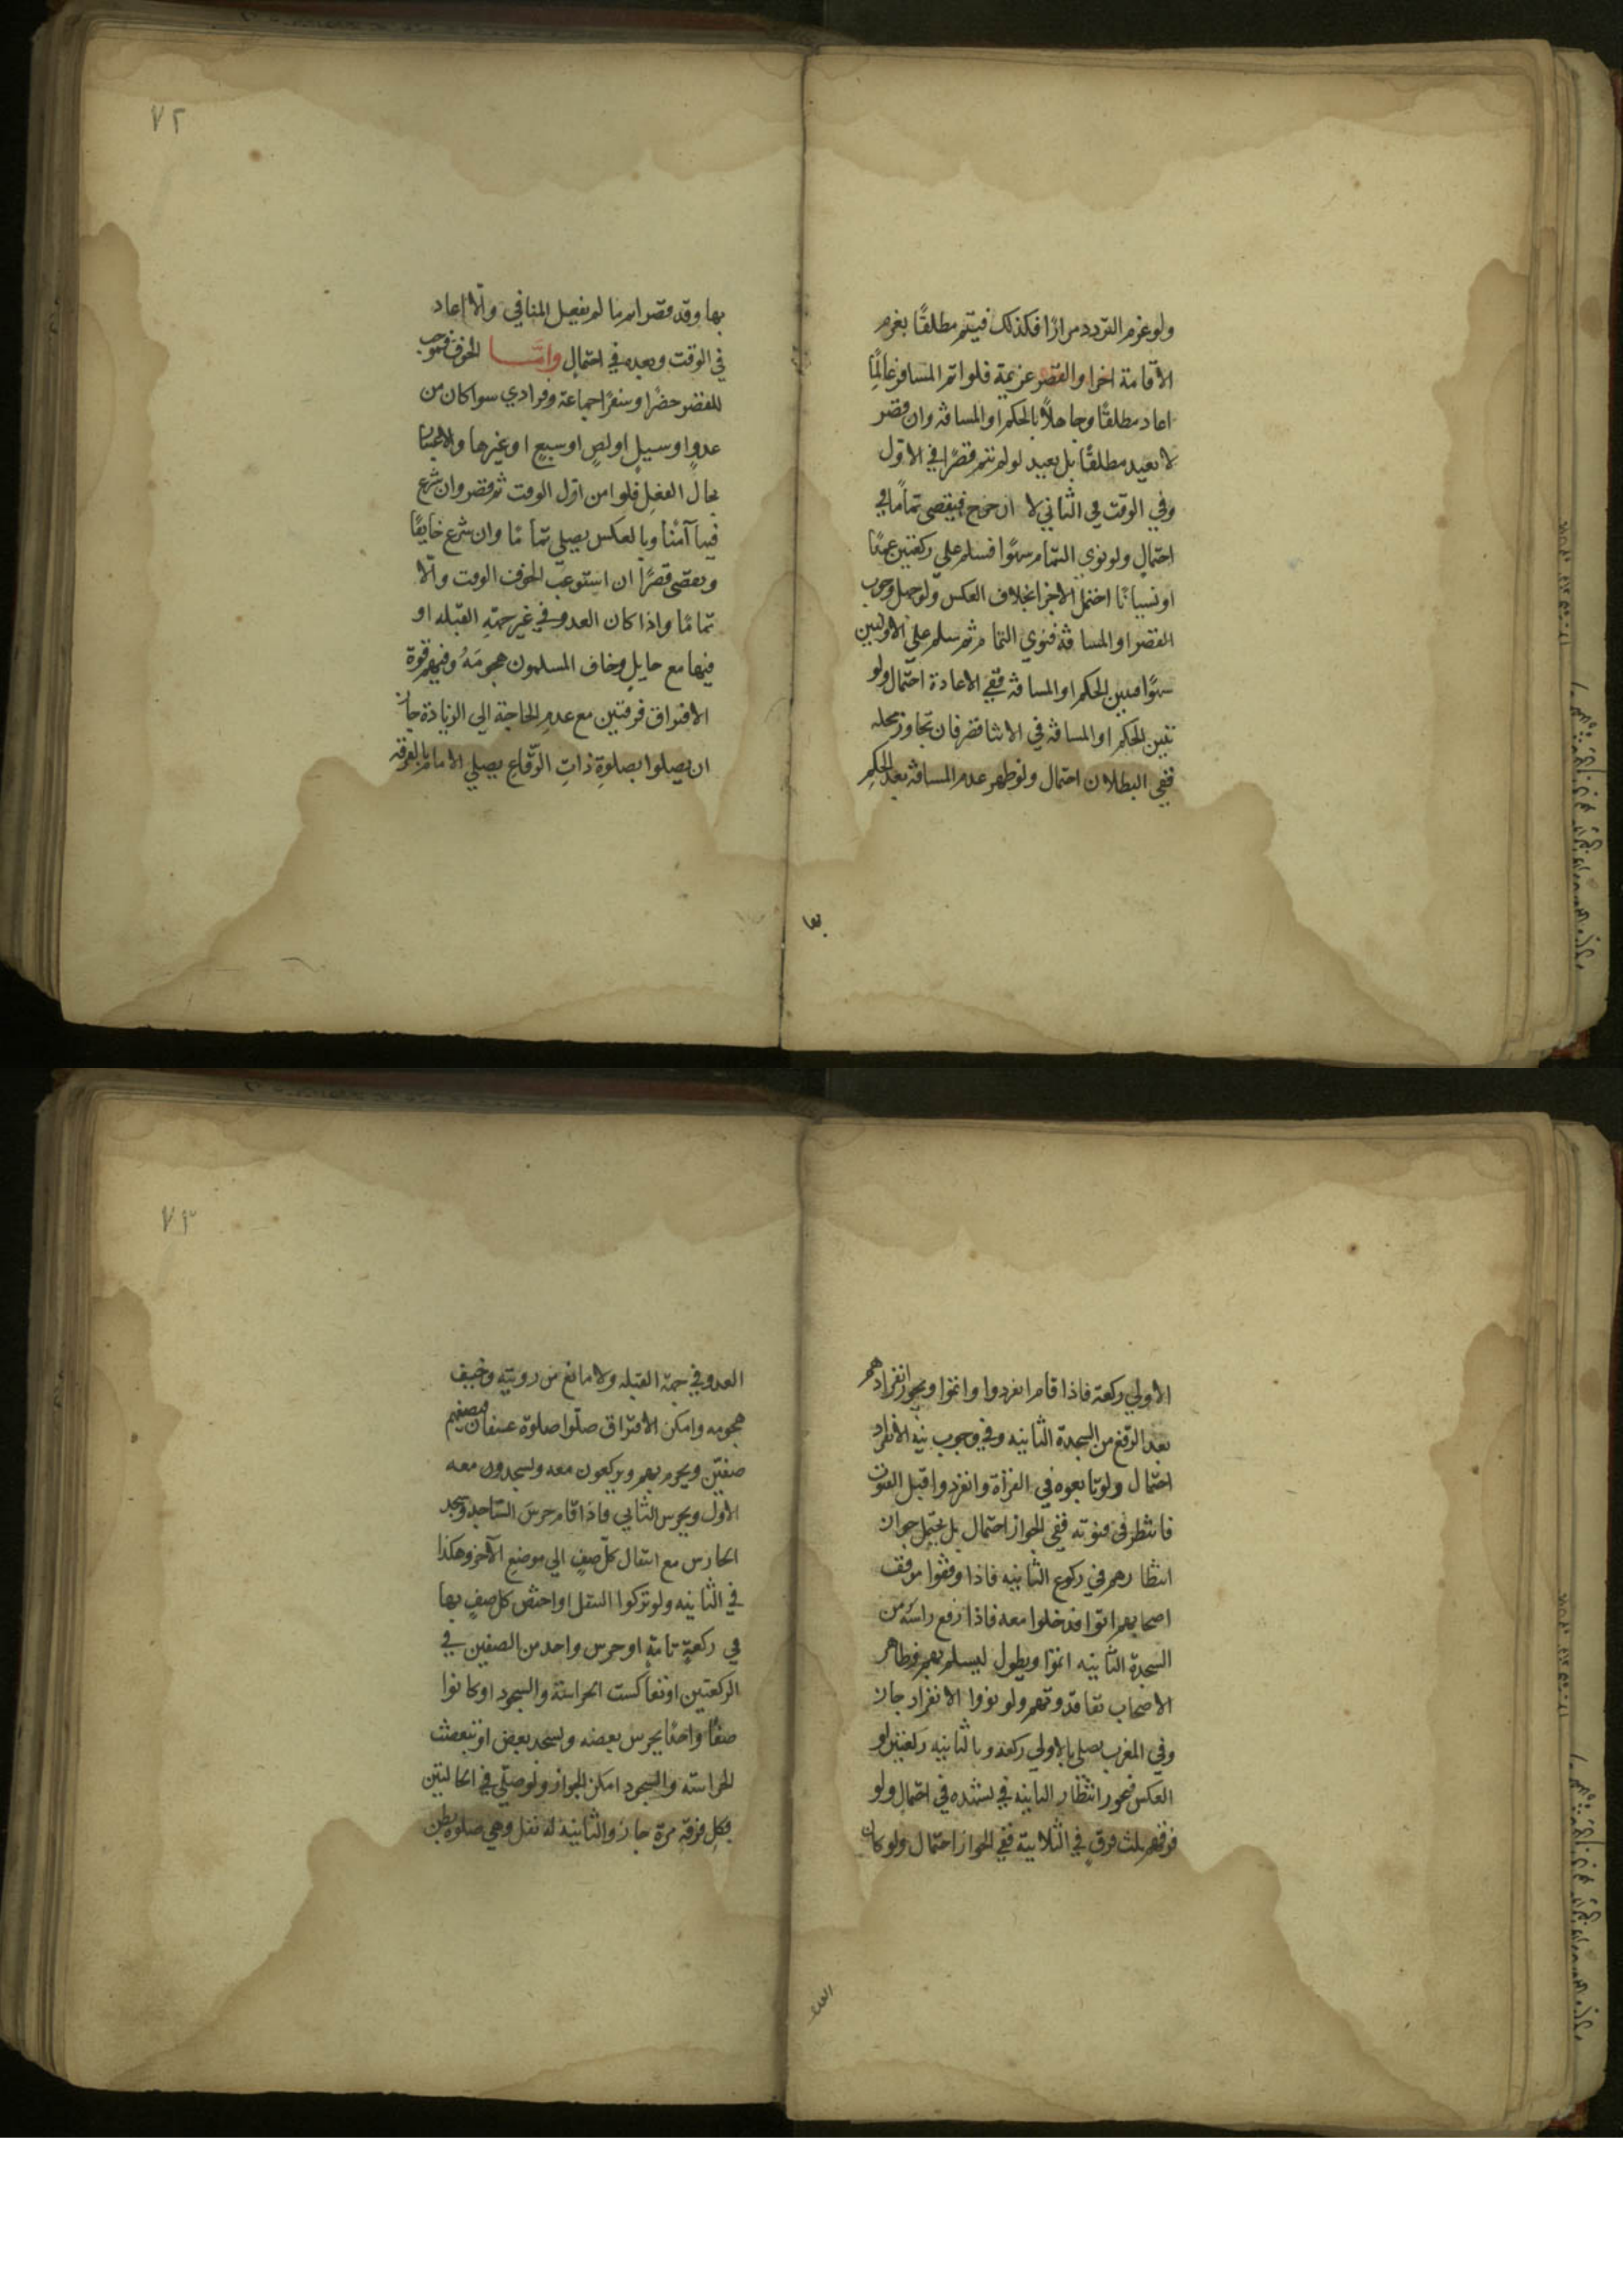 ولو عزم التردد مرارًا فكذلك فيتم مطلقًا بعزم
الاقامة اخرا والقصر عزيمة فلو اتم المسافر عالمًا
اعاد مطلقًا وجاهلاً بالحكم او المسافة وان قصر
لا يعيد مطلقًا بل يعيد لو لم يتم قصرًا في الاول
وفي الوقت في الثاني لا ان خرج فيقضي تمامًا في
احتمال ولو نوى التمام سهوًا فسلم على ركعتين عمدًا
او نسيانًا احتمل الاجزا بخلاف العكس ولو جهل وجوب
القصر او المسافة فنوي التمام ثم سلم على الاوليين
سهوًا فتبين الحكم او المسافة ففي الاعادة احتمال ولو
تبين الحكم او المسافة في الاثنا قصر فان تجاوز محله
ففي البطلان احتمال ولو ظهر عدم المسافة بعد الحكم
بها
٧٢
بها وقد قصر اتم ما لم يفعل المنافي والّا اعاد
في الوقت وبعده في احتمال وامّا الخوف فموجب
للقصر حضرًا وسفرًا جماعة وفرادي سوا كان من
عدوٍ او سيلٍ او لصٍ او سبعٍ او غيرها والاعتبار
بحال الفعل فلو امن اول الوقت ثم قصر وان شرع
فيها آمنًا وبالعكس يصلي تمامًا وان شرع خايفًا
ويقضي قصرًا ان استوعب الخوف الوقت والّا
تمامًا واذا كان العدو في غير جهة القبلة او
فيها مع حايلٍ وخاف المسلمون هجومَهُ وفيهم قوة
الافتراق فرقتين مع عدم الحاجة الي الزيادة جاز
ان يصلوا بصلوةِ ذاتِ الرّقاعِ يصلي الامام بالفرقة
الاولي ركعة فاذا قام انفردوا واتموا ويجوز انفرادهم
بعد الرفع من السجدة الثانيه وفي وجوب نية الانفراد
احتمال ولو تابعوه في القرأة وانفردوا قبل القنوت
فانتظر في قنوته ففي الجواز احتمال بل يحتمل جواز
انتظارهم في ركوع الثانيه فاذا وقفوا موقف
اصحابهم اتوا فدخلوا معه فاذا رفع راسه من
السجدة الثانيه اتموا ويطول ليسلم بهم وظاهر
الاصحاب بقا قدوتهم ولو نووا الانفراد جاز
وفي المغرب يصلي بالاولي ركعة وبالثانيه ركعتين او
العكس فيجوز انتظار الثانيه في تشهده في احتمال ولو
فرقهم ثلث فرقٍ في الثلاثية ففي الجواز احتمال ولو كان
العدو
٧٣
العدو في جهة القبله ولا مانع من رويته وخيف
هجومه وامكن الافتراق صلّوا صلوة عسفان فيصفهم
صفيّن ويحرم بهم ويركعون معه ويسجدون معه
الاول ويحرس الثاني فاذا قام حرسَ السّاجد وسجد
الحارس مع انتقال كل صفٍ الي موضعِ الآخر وهكذا
في الثانيه ولو تركوا التنقل او اختص كل صفٍ بها
في ركعةٍ تامةٍ او حرس واحد من الصفين في
الركعتين او تعاكست الحراسة والسجود او كانوا
صفًا واحدًا يحرس بعضه ويسجد بعض او تبعضت
الحراسة والسجود امكن الجواز ولو صلّي في الحالتين
بكلِ فرقةٍ مرة جاز والثانية له نفل وهي صلوة بطن